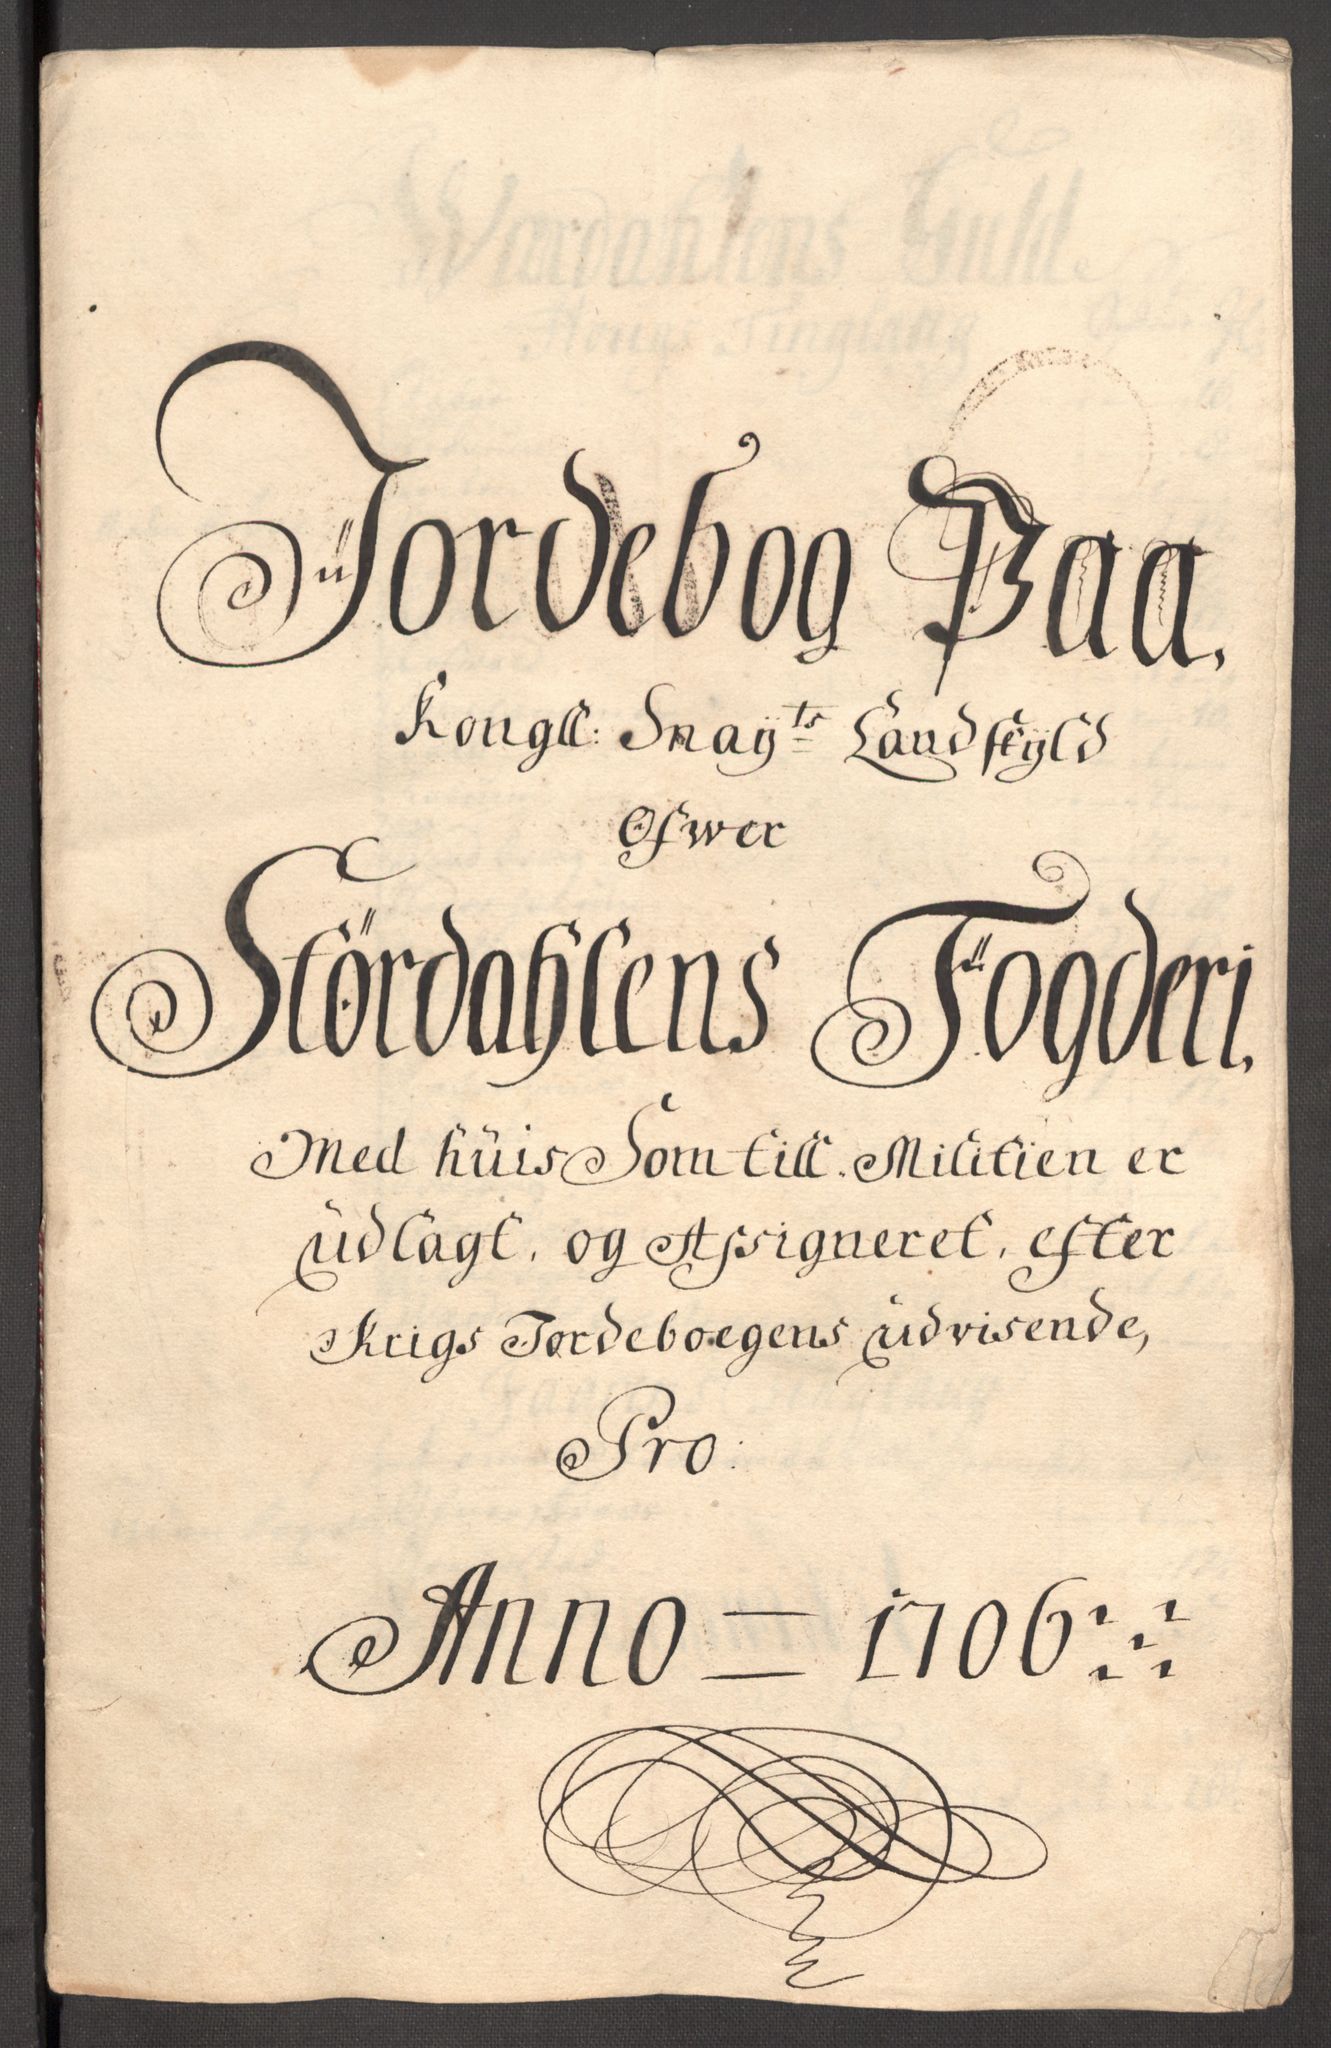 Jordebog Paa.
Kongll: Mayts Landskyld
Ofwer
Stördahlens Fogderi.
Med huis Som till Militien er
udlagt, og Assigneret, efter
Krigs Jordeboegens udvisende,
Pro:
Anno = 1706